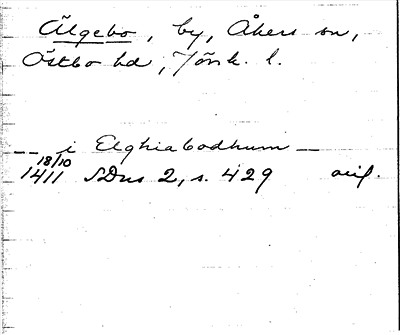 Älgebo, by, Åkers sn,
Östbo hd, Jönk. l.
-- i Elghiabodhum --
18/10
1411 SDns 2, s. 429 avs.